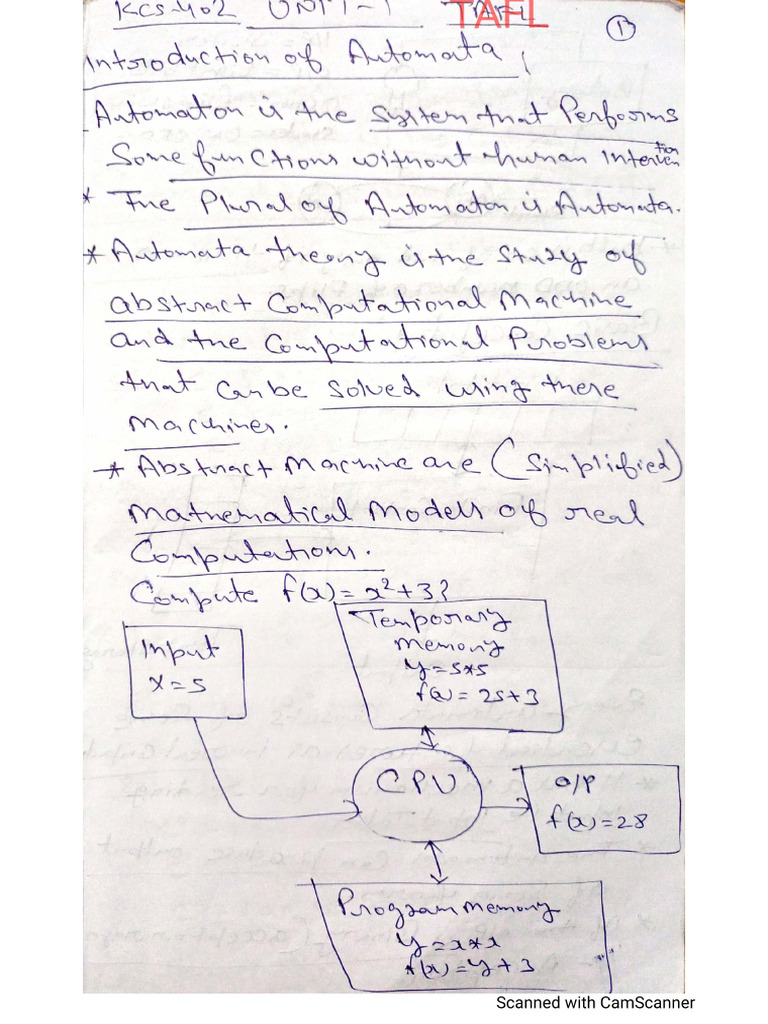 KCS-402 UNIT-1 TAFL
1
Introduction of Automata
Automaton is the system that Performs
Some functions without human Intervention
* The Plural of Automaton is Automata.
* Automata theory is the study of
abstract Computational Machine
and the Computational Problems
that can be solved using these
machines.
* Abstract Machine are (Simplified)
Mathematical Models of real
Computations.
Compute f(x) = x²+3?
Input
x=5
Temporary
memory
y=5*5
f(x) = 25+3
CPU
O/P
f(x)=28
Program memory
y=x*x
f(x)=y+3
Scanned with CamScanner